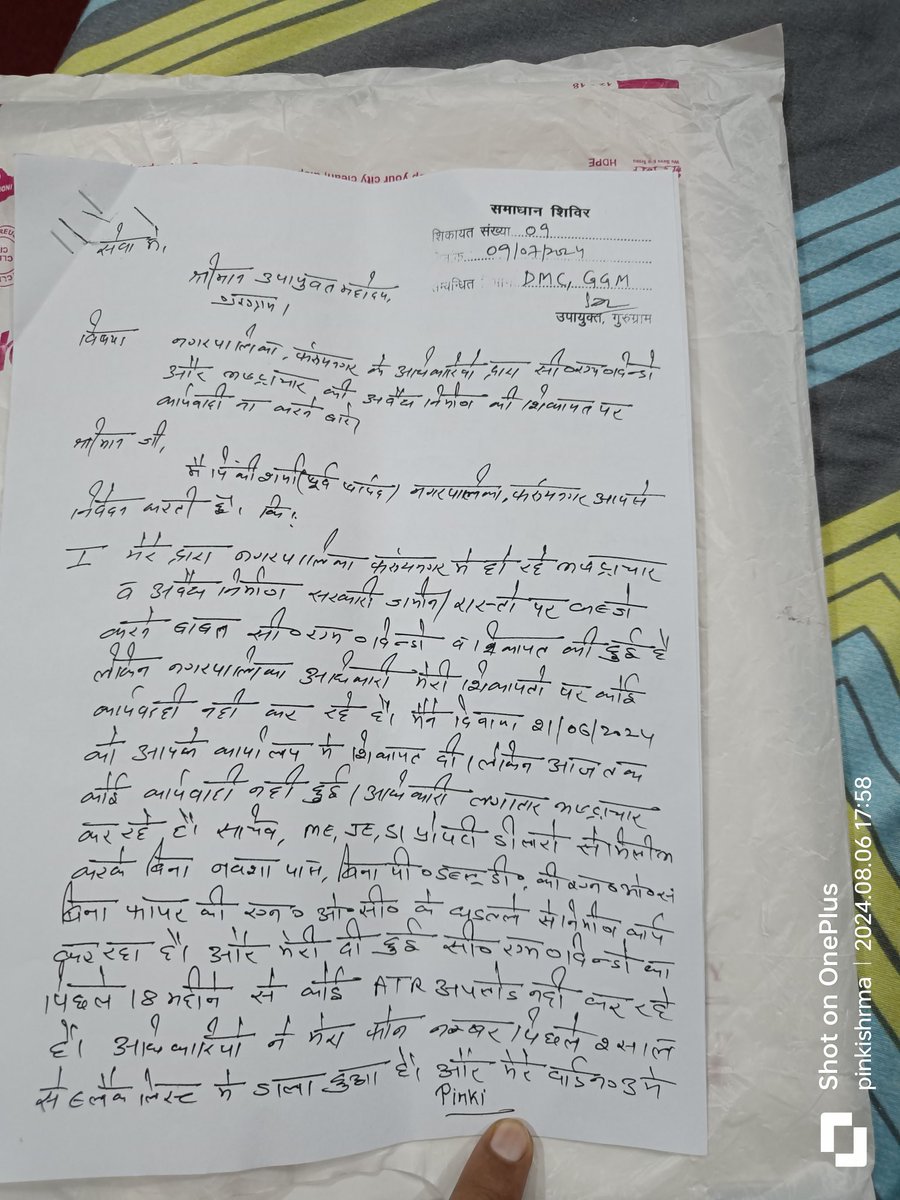 समाधान शिविर
शिकायत संख्या 09
09/07/2024
DMC, GGM
उपायुक्त, गुरुग्राम
सेवा में,
श्रीमान उपायुक्त महोदय,
गुरुग्राम।
विषय नगरपालिका, फर्रुखनगर के अधिकारियों द्वारा सी०एम०विन्डो
और भ्रष्टाचार की अवैध निर्माण की शिकायत पर
कार्यवाही ना करने बारे।
श्रीमान जी,
मैं पिंकी शर्मा (पूर्व पार्षद) नगरपालिका, फर्रुखनगर आपसे
निवेदन करती हूँ। कि:
I मेरे द्वारा नगरपालिका फर्रुखनगर में हो रहे भ्रष्टाचार
व अवैध निर्माण सरकारी जमीन/रास्तो पर कब्जे
करने बाबत सी०एम०विन्डो व शिकायत की हुई है
लेकिन नगरपालिका अधिकारी मेरी शिकायतो पर कोई
कार्यवाही नही कर रहे है। मैंने दिनांक 21/06/2024
को आपके कार्यालय मे शिकायत दी। लेकिन आज तक
कोई कार्यवाही नही हुई। अधिकारी लगातार भ्रष्टाचार
कर रहे है। सचिव, ME, JE, प्रोपर्टी डीलरो से
करके बिना नक्शा पास, बिना पी०डब्लू०डी०,
बिना फायर की एन०ओ०सी० के धडल्ले से निर्माण कार्य
कर रहा है। और मेरी दी हुई सी०एम०विन्डो का
पिछले 18 महीने से कोई ATR अपलोड नही कर रहे
है। अधिकारियो ने मेरा फोन नम्बर पिछले 2 साल
से ब्लैक लिस्ट मे डाला हुआ है। और मेरे वार्ड न० 3 मे
Pinki
HDPE
Shot on OnePlus
pinkishrma | 2024.08.06 17:58